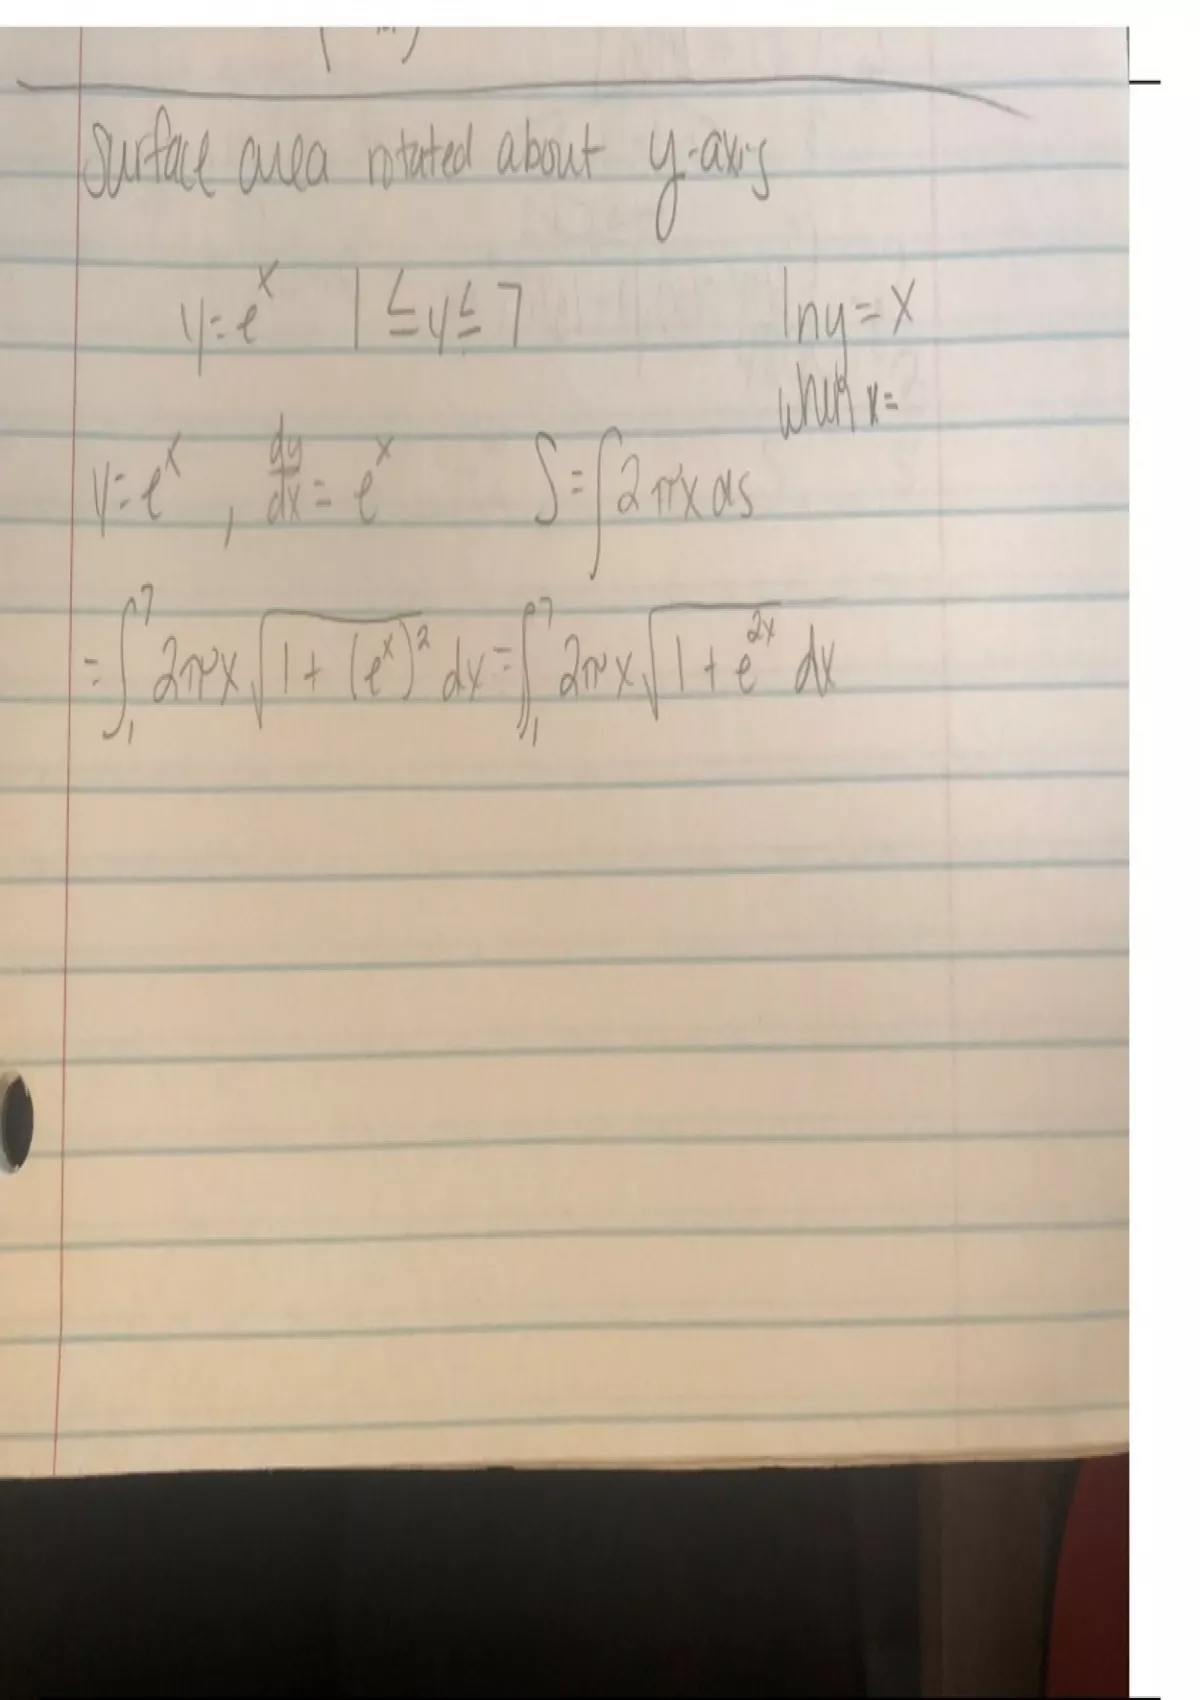 Surface area rotated about y-axis
y=e^x 1≤y≤7 lny=x
when x=
y=e^x, dy/dx=e^x S=∫2πx ds
=∫₁⁷ 2πx √(1+(e^x)²) dx=∫₁⁷ 2πx √(1+e^2x) dx